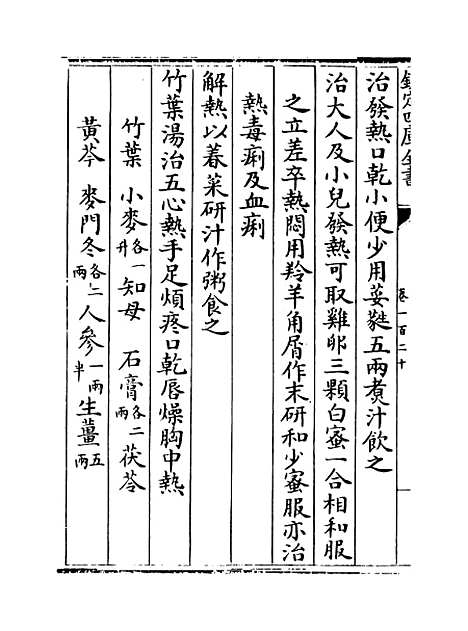 欽定四庫全書
卷一百二十
治發熱口乾小便少用萎蕤五兩煮汁飲之
治大人及小兒發熱可取雞卵三顆白蜜一合相和服
之立差卒熱悶用羚羊角屑作末研和少蜜服亦治
熱毒痢及血痢
解熱以蓴菜研汁作粥食之
竹葉湯治五心熱手足煩疼口乾唇燥胸中熱
竹葉 小麥各一升 知母 石膏各二兩 茯苓
黃芩 麥門冬各二兩 人參一兩半 生薑五兩